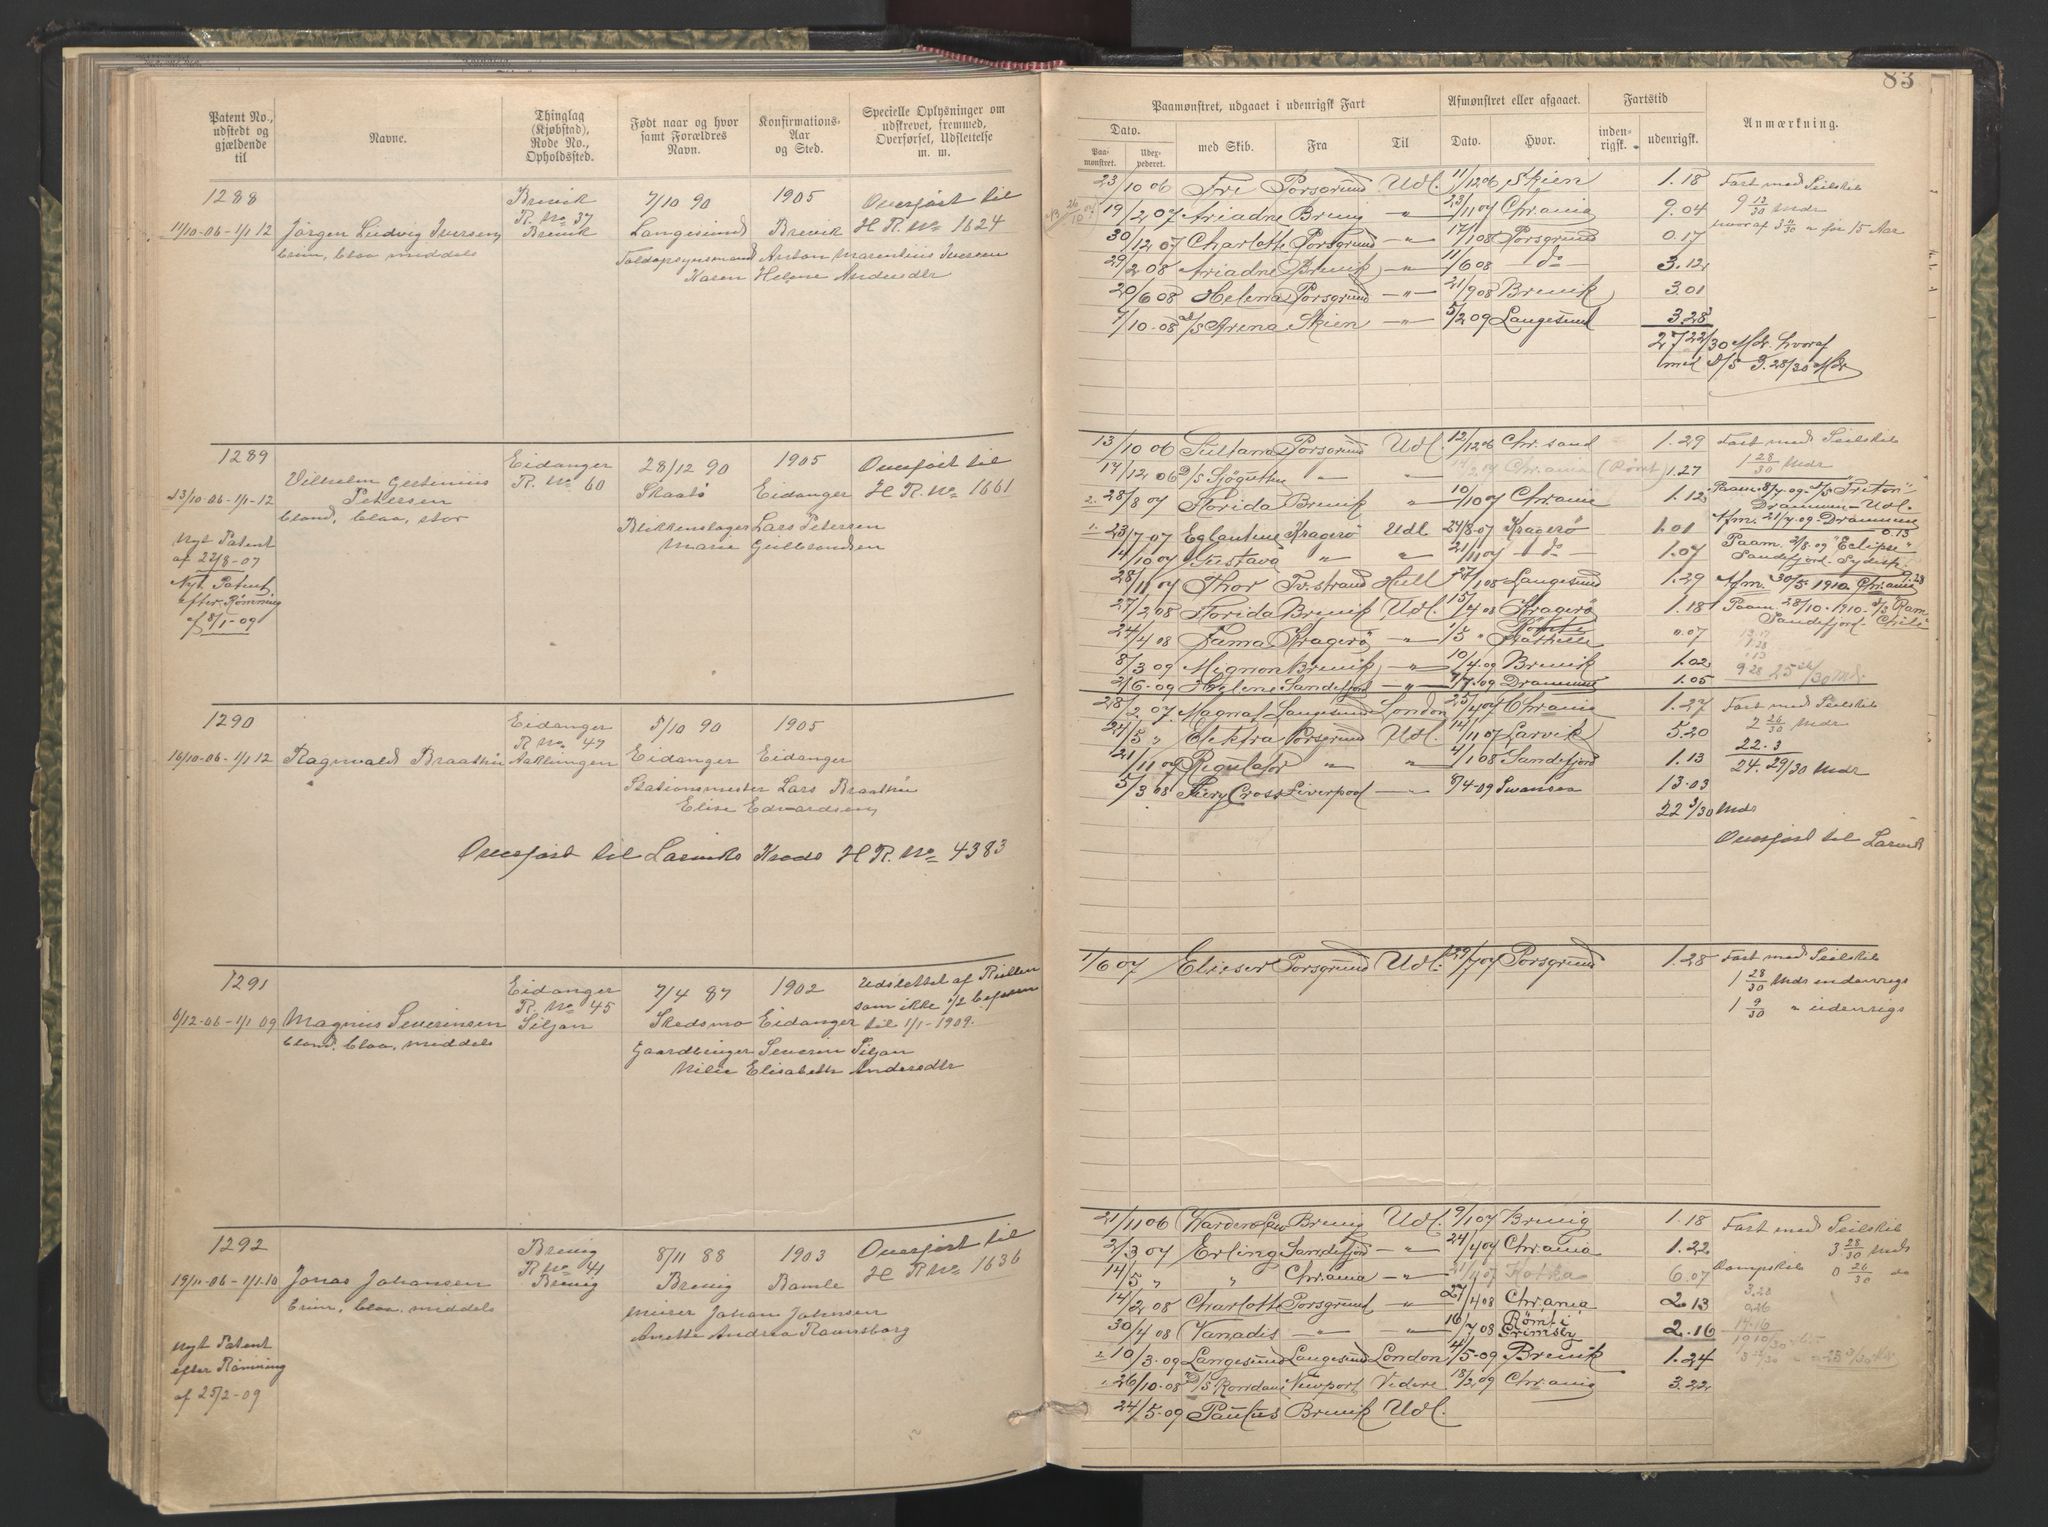 83
Patent No., udstedt og gjældende til
Navne.
Thinglag (Kjøbstad), Rode No., Opholdssted.
Født naar og hvor samt Forældres Navn.
Konfirmations-Aar og Sted.
Specielle Oplysninger om udskrevet, fremmed, Overførsel, Udslettelse m. m.
Paamønstret, udgaaet i udenrigsk Fart
Afmønstret eller afgaaet.
Fartstid
Anmærkning.
Dato.
Paa-mønstret.
Udex-pederet.
med Skib.
Fra
Til
Dato.
Hvor.
inden-rigsk.
udenrigsk.
1288
11/10-06-1/1 12
Jørgen Ludvig Iversen
brun, blaa middels
Brevik
R. No 37
Brevik
7/10 90
Langesund
1905
Brevik
Overført til
H R. No 1624
Toldopsynsmand Anton Marentius Iversen
Karen Helene Andersdtr
23/10 06 Fri Porsgrund Udl. 11/12 06 Skien 1.18 Fart med Seilskib
19/2 07 Ariadne Brevig " 23/11 07 Chr.ania 9.04 9 12/30 Mdr
30/12 07 Charlotte Porsgrund " 17/1 08 Porsgrund 0.17 hvoraf for 15 Aar
29/2 08 Ariadne Brevik " 11/6 08 do 3.12
20/6 08 Helena Porsgrund " 21/9 08 Brevik 3.01
7/10-08 d/s Arena Skien " 5/2 09 Langesund 3.28
27 22/30 Mdr. hvoraf
med d/s 3.28/30 Mdr
1289
13/10-06-1/1-12
Vilhelm Gertinius
Petersen
blond, blaa, stor
Nyt Patent
af 22/8-07
Nyt Patent
efter Rømning
af 8/1-09
Eidanger
R. No 60
28/12 90
Skaatø
1905
Eidanger
Overført til
H R. No 1661
Blikkenslager Lars Petersen
Marie Gulbrandsen
13/10 06 Sultana Porsgrund Udl. 12/12 06 Chr.sand 1.29 Fart med Seilskib
17/12 06 D/S Sjøgutten " " Chr.ania (Rømt) 1.27 1 28/30 Mdr
2. 28/8 07 Florida Brevik " 10/10 07 Chr.ania 1.12 Paam. 8/7-09 d/s "Triton"
Drammen-Udl.
1. 23/7 07 Eglantine Kragerø Udl 24/8-07 Kragerø 1.01 Afm. 21/7-09-Drammen
0.13
14/10 07 Gustava " " 21/11 07 do 1.07 Paam. 2/8-09 "Eclipse"
Sandefjord. Sydish.
28/11 07 Thor Tv.strand Hull 27/1 08 Langesund 1.29 Afm. 30/5 1910 Chr.ania 9.28
27/2 08 Florida Brevik Udl. 15/4 08 Kragerø 1.18 Paam. 28/10-1910- d/s "Ram"
Sandefjord "Chile"
24/4 08 Fama Kragerø " 1/5 " Rømte Stathelle 0.07
8/3 09 Mignon Brevik " 10/4-09 Brevik 1.02
2/6-09 Helene Sandefjord " 7/7-09 Drammen 1.05 9.28 25 26/30 Mdr
1290
16/10-06-1/1 12
Ragnvald Braathen
Eidanger
R No 47
Aaklungen
5/10 90
Eidanger
1905
Eidanger
Stationsmester Lars Braathen
Elise Edvardsen
Overført til Larviks Kreds H R. No 4383
28/2 07 Magnat Langesund London 25/4 07 Chr.ania 1.27 Fart med Seilskib
24/5 " Elektra Porsgrund Udl 14/11 07 Larvik 5.20 2 26/30 Mdr
21/11 07 Regulator " " 4/1 08 Sandefjord 1.13 22.3
24.29/30 Mdr
5/3 08 Fiery Cross Liverpool 8/4-09 Swansea 13.03
22 3/30 Mdr
Overført til Larvik
1291
6/12-06-1/1 09
Magnus Severinsen
blond. blaa, middels
Eidanger
R. No 45
Siljan
7/4 87
Skedsmo
1902
Eidanger
Udslettet af Rullen
som ikke 1/2 befaren
til 1/1-1909.
Gaardbruger Severin Siljan
Nilie Elisabeth Andersdtr
1/6 07 Elieser Porsgrund Udl. 29/7 07 Porsgrund 1.28 Fart med Seilskib
1 28/30 Mdr indenrigs
1 9/30 " udenrigs
1292
19/11-06-1/1.10
Jonas Johansen
brun, blaa. middels
Nyt Patent
efter Rømning
af 25/2-09
Brevig
R No 41
Brevig
8/11 88
Brevig
1903
Bamle
Overført til
H R No 1636
Murer Johan Johnsen
Anette Andrea Ravnsborg
21/11 06 Brevig Udl. 9/1 07 Brevig 1.18 Fart med Seilskib
2/3 07 Erling Sandefjord " 24/4 07 Chr.ania 1.22 3 28/30 Mdr
14/5 " " Chr.ania " 21/11 07 Kotka 6.07 Dampskib 0 26/30 do
14/2 08 Charlotte Porsgrund " 27/4 08 Chr.ania 2.13 3.28
0.26
30/4 08 Vanadis " " 16/7 08 Rømt i Grimsby 2.16 14.16
19 10/30
2. 10/3-09 Langesund Langesund London 4/5-09 Brevik 1.24
1. 26/10-08 D/s Rondane Newport Videre 18/2 09 Chr.ania 3.22
24/5-09 Paulus Brevik Udl.